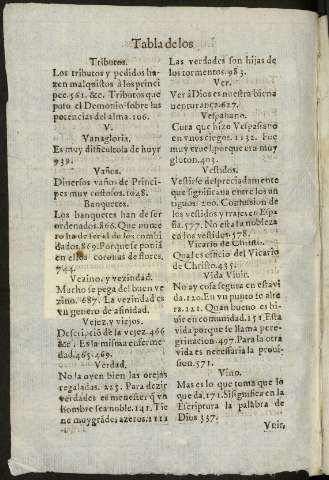 Tabla de los
Tributos.
Los tributos y pedidos ha-
zen malquistos à los princi
pes.561. &c. Tributos que
puso el Demonio sobre las
potencias del alma.106.
V.
Vanagloria.
Es muy dificultosa de huyr
939.
Vaños.
Diuersos vaños de Princi-
pes muy costosos.1048.
Banquetes.
Los banquetes han de ser
ordenados.866. Que nume
ro ha de ser el de los combi
dados.869. Porque se ponia
en ellos coronas de flores.
744.
Vezino, y vezindad.
Mucho se pega del buen ve
zino.687. La vezindad es
vn genero de afinidad.
Vejez, y viejos.
Descripciō de la vejez.466
&c. Es la misma enferme-
dad.465.469.
Verdad.
No la oyen bien las orejas
regaladas. 225. Para dezir
verdades es menester q̃ vn
hombre sea noble.141. Tie
ne muy grādes azeros.1111
Las verdades son hijas de
los tormentos.983.
Ver.
Ver à Dios es nuestra biena
uenturança.627.
Vespasiano.
Cura que hizo Vespasiano
en vnos ciegos.1132. Fue
muy cruel, porque era muy
gloton.403.
Vestidos.
Vestirse despreciadamente
que significaua entre los an
tiguos.200. Confusion de
los vestidos y trajes en Espa
ña.577. No esta la nobleza
en los vestidos.578.
Vicario de Christo.
Qual es oficio del Vicario
de Christo.435.
Vida Viuir.
No ay cosa segura en esta vi
da.120. En vn punto se alte
ra.121. Quan bueno es bi-
uir en comunidad.151. Esta
vida porque se llama pere-
grinacion.497. Para la otra
vida es necessaria la proui-
sion.571.
Vino.
Mas es lo que toma que lo
que da.171. Si significa en la
Escriptura la palabra de
Dios 337.
Viuir,